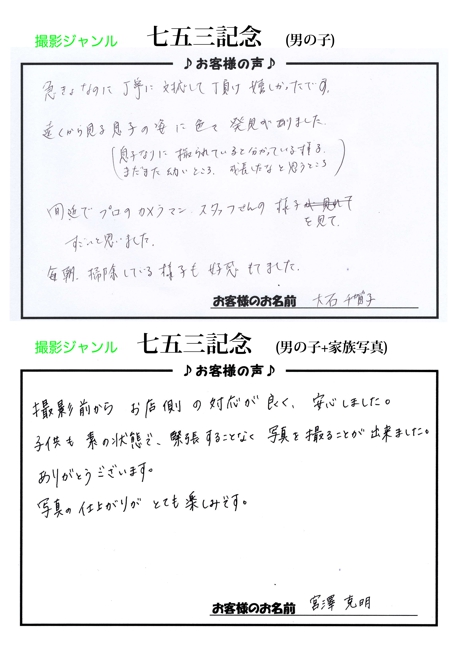 撮影ジャンル 七五三記念 (男の子)
♪お客様の声♪
急きょなのに 丁寧に 対応して 頂け 嬉しかったです。
遠くから見る息子の姿に色々 発見がありました。
(息子なりに 撮られていると分かっている様子。
まだまだ幼いところ、成長したなと思うところ)
間近でプロのカメラマン、スタッフさんの 様子
を見て、
すごいと思いました。
毎朝、掃除している様子も 好感 もてました。
お客様のお名前 大石
撮影ジャンル 七五三記念 (男の子+家族写真)
♪お客様の声♪
撮影前から お店側の対応が良く、安心しました。
子供も 素の状態で、緊張することなく 写真を撮ることが出来ました。
ありがとうございます。
写真の仕上がりが とても楽しみです。
お客様のお名前 宮澤 克明